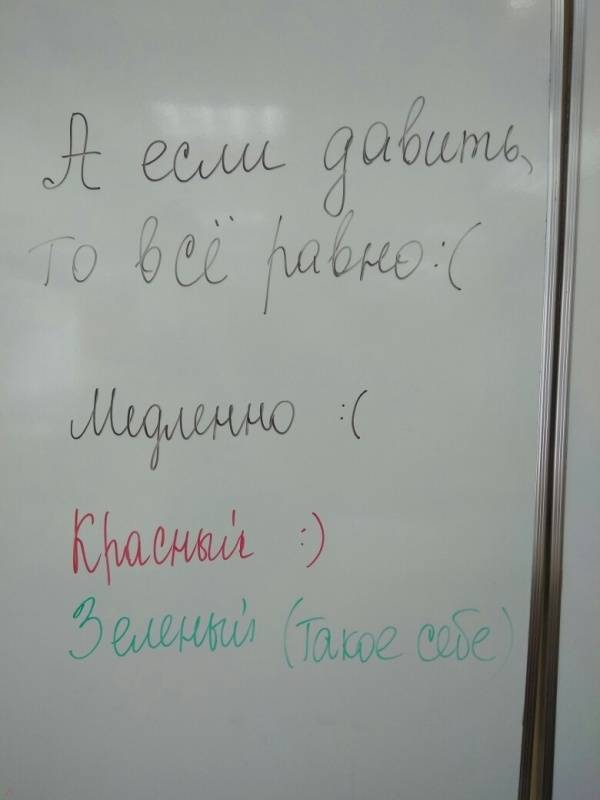 А если давить,
то всё равно:(
Медленно :(
Красный :)
Зеленый (такое себе)